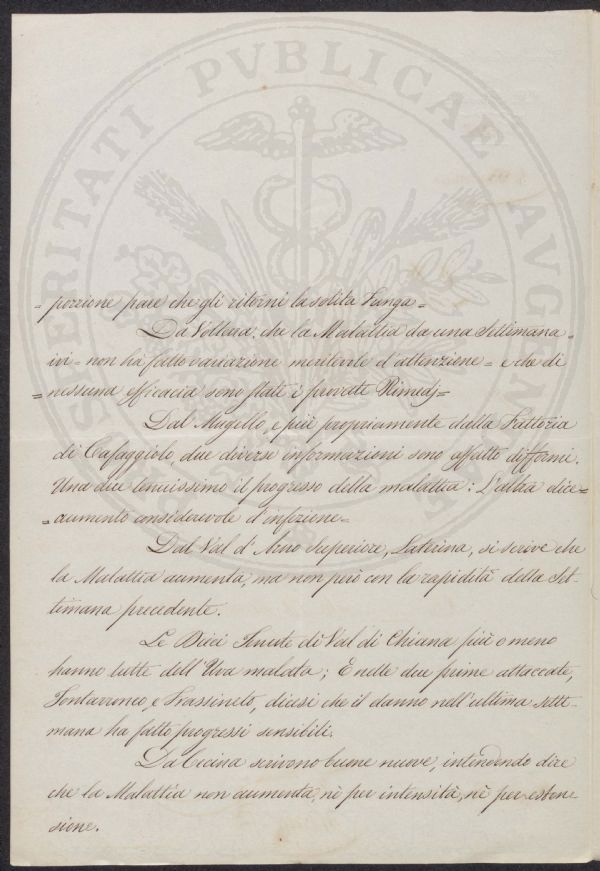 PROSPERITATI PVBLICAE AVGENDAE
= porzione pare che gli ritorni la solita Funga =
Da Volterra, che la Malattia da una Settimana
ivi = non ha fatto variazione meritevole d'attenzione = e che di
= nessuna efficacia sono stati i provati Rimedj =
Dal Mugello, e più propriamente dalla Fattoria
di Cafaggiolo, due diverse informazioni sono affatto difformi.
Una dice tenuissimo il progresso della malattia: L'altra dice =
= aumento considerevole d'infezione =
Dal Val d'Arno Superiore, Laterina, si scrive che
la Malattia aumenta, ma non però con la rapidità della Set-
timana precedente.
Le Dieci Tenute di Val di Chiana più o meno
hanno tutte dell'Uva malata; E nelle due prime attaccate,
Fontarronco, e Frassineto, dicesi che il danno nell'ultima setti-
mana ha fatto progressi sensibili.
Da Cecina scrivono buone nuove, intendendo dire
che la Malattia non aumenta, nè per intensità, nè per esten
sione.